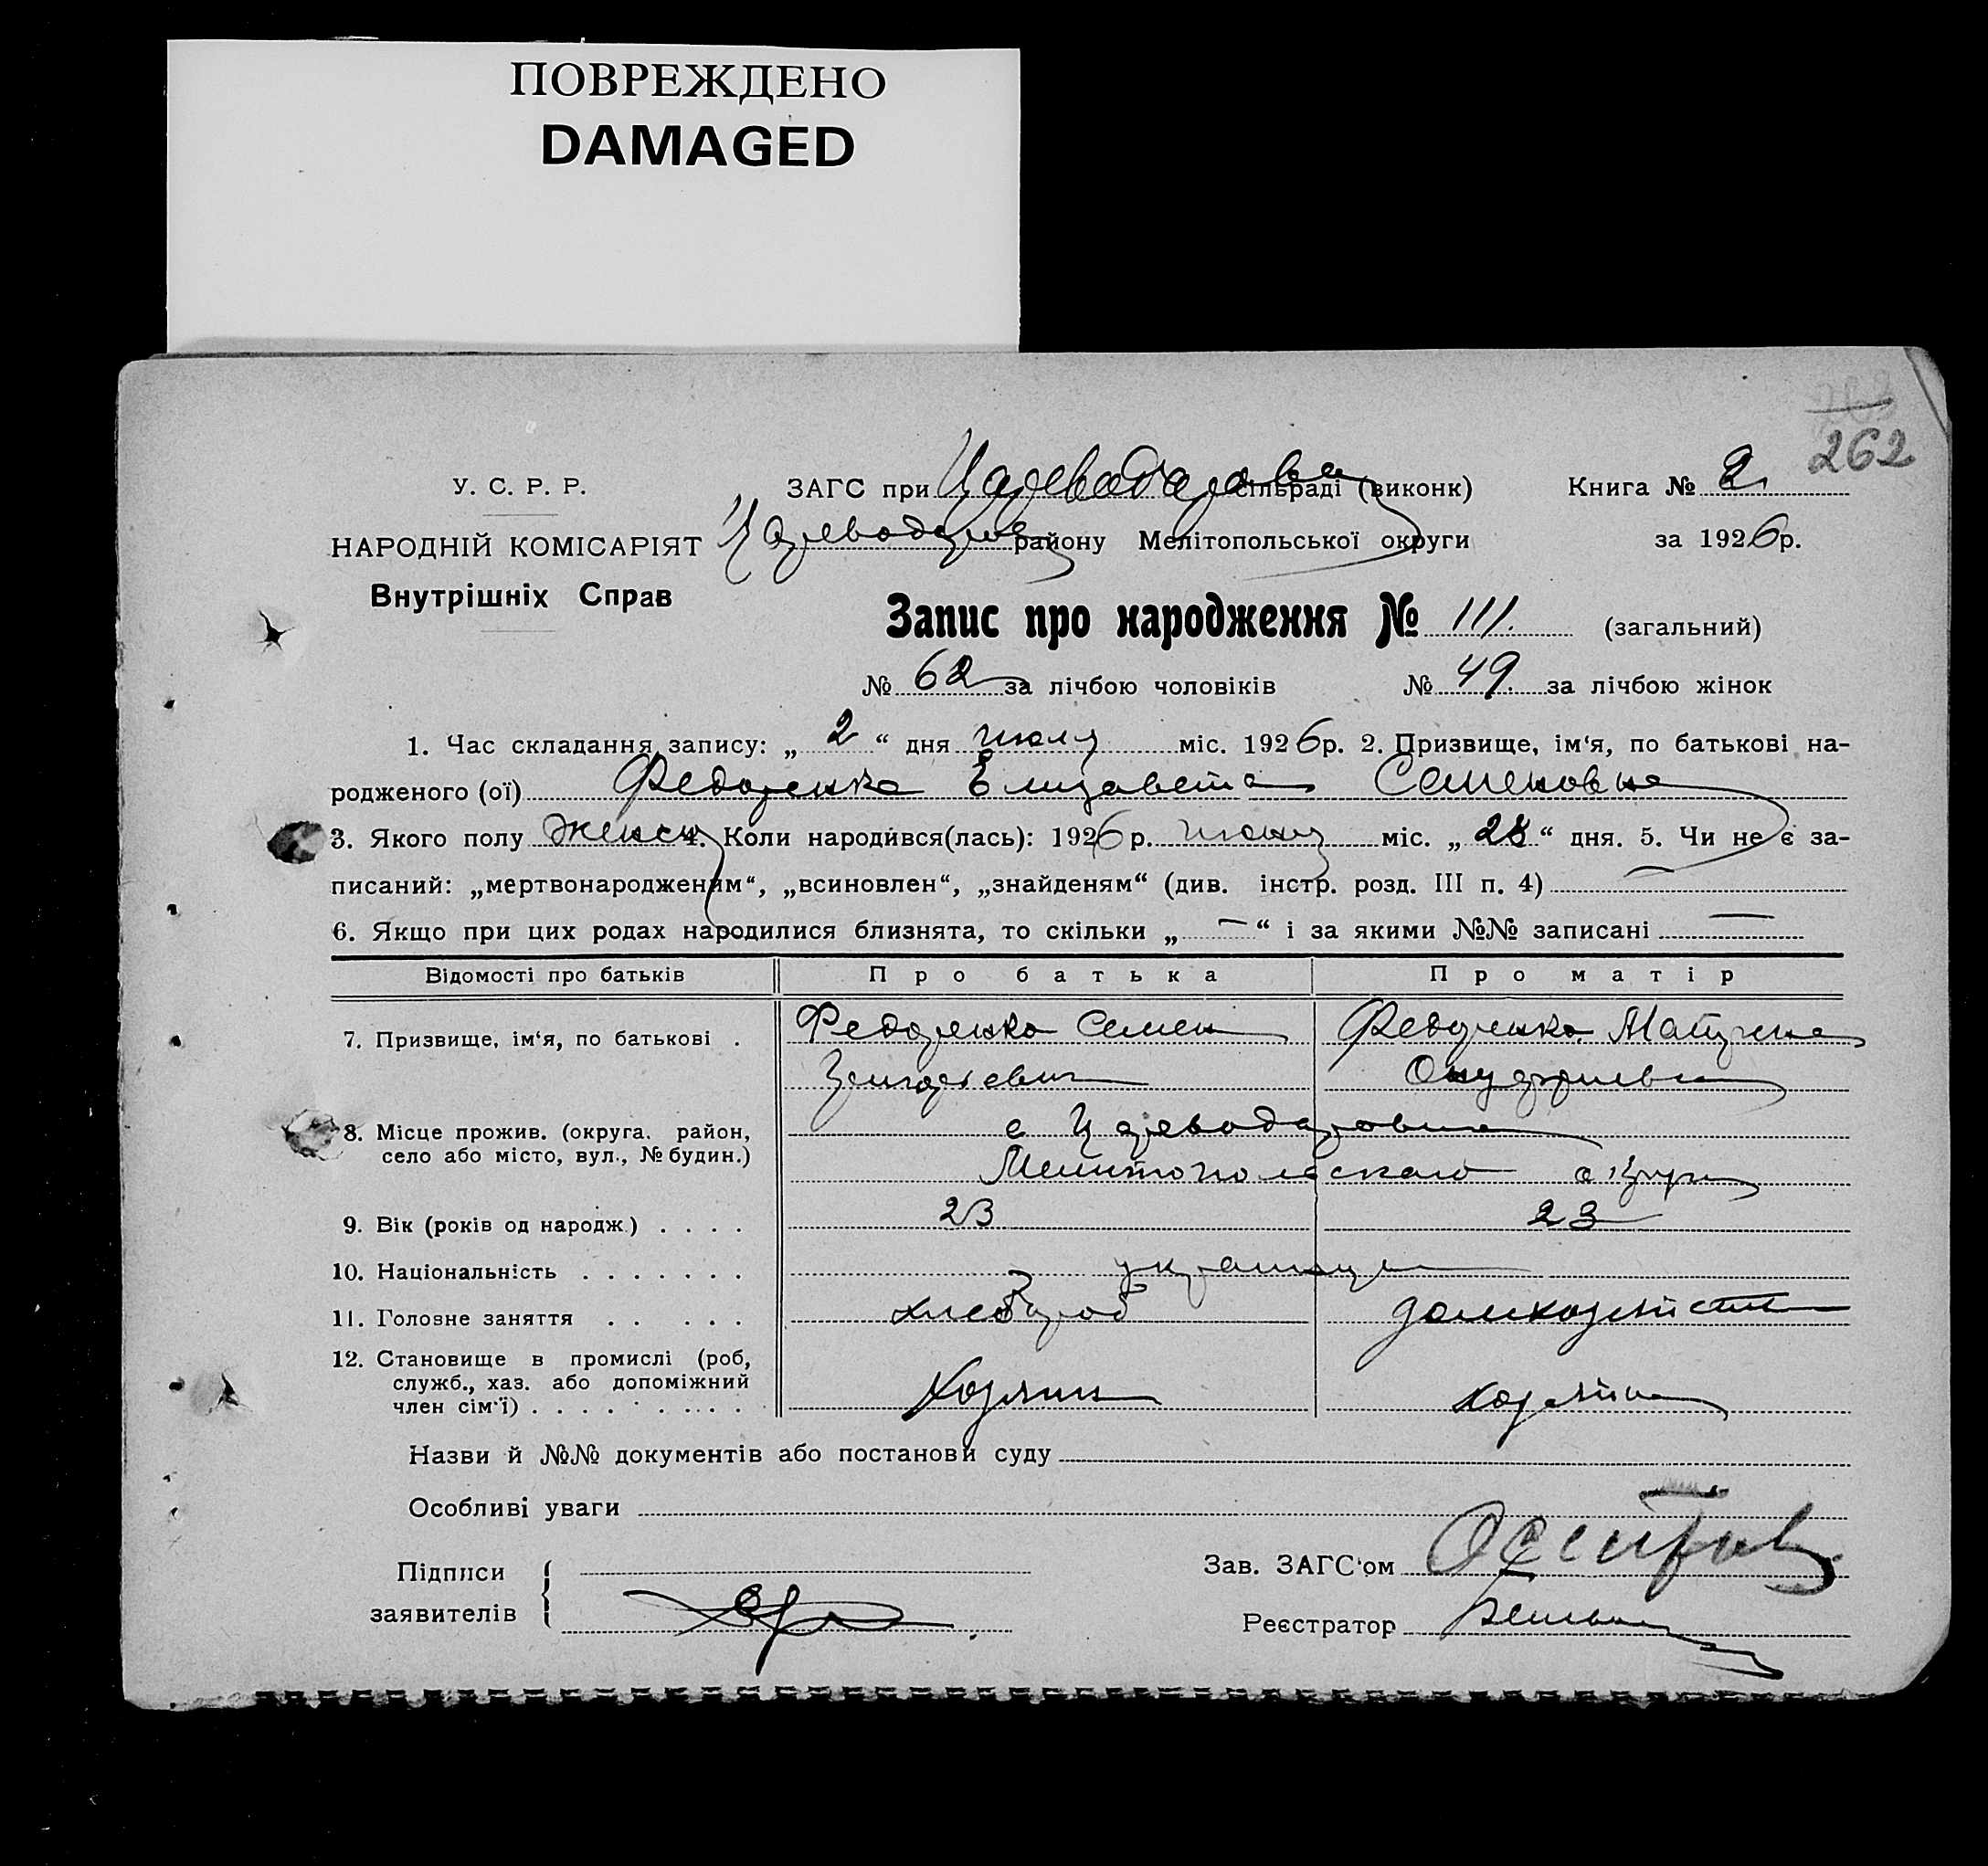 ПОВРЕЖДЕНО
DAMAGED
262
У. С. Р. Р.
НАРОДНІЙ КОМІСАРІЯТ
Внутрішніх Справ
ЗАГС при сільраді (виконк)
району Мелітопольської округи
Книга № 2
за 1926р.
Запис про народження № 111. (загальний)
№ 62 за лічбою чоловіків № 49. за лічбою жінок
1. Час складання запису: „ 2 “ дня июля міс. 1926р. 2. Призвище, ім‘я, по батькові на-
родженого (ої) Федоренко Елизавета Семеновна
3. Якого полу женск 4. Коли народився(лась): 1926р. июня міс. „ 28 “ дня. 5. Чи не є за-
писаний: „мертвонародженим“, „всиновлен“, „знайденям“ (див. інстр. розд. III п. 4) —
6. Якщо при цих родах народилися близнята, то скільки „ — “ і за якими №№ записані —
Відомості про батьків Про батька Про матір
7. Призвище, ім‘я, по батькові . Федоренко Семен Федоренко Матрена
Онуфриевна
8. Місце прожив. (округа. район,
село або місто, вул., № будин.)
с Цареводаровка
Мелитопольского округа
9. Вік (років од народж.) . . . . 23 23
10. Національність . . . . . . . украинцы
11. Головне заняття . . . . . хлебороб домхозяйство
12. Становище в промислі (роб,
служб., хаз. або допоміжний
член сім‘ї) . . . . . . . . . . хозяин хозяйка
Назви й №№ документів або постанови суду
Особливі уваги
Підписи
заявителів
Зав. ЗАГС‘ом
Реєстратор